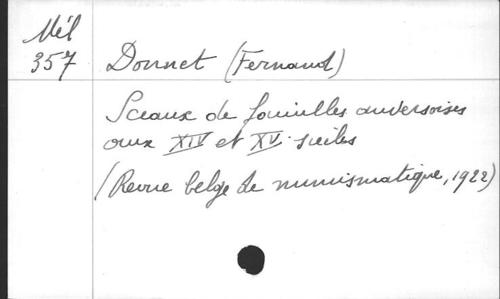 Mél
357
Donnet (Fernand)
Sceaux de familles anversoises
aux XIV et XV siècles
(Revue belge de numismatique, 1922)